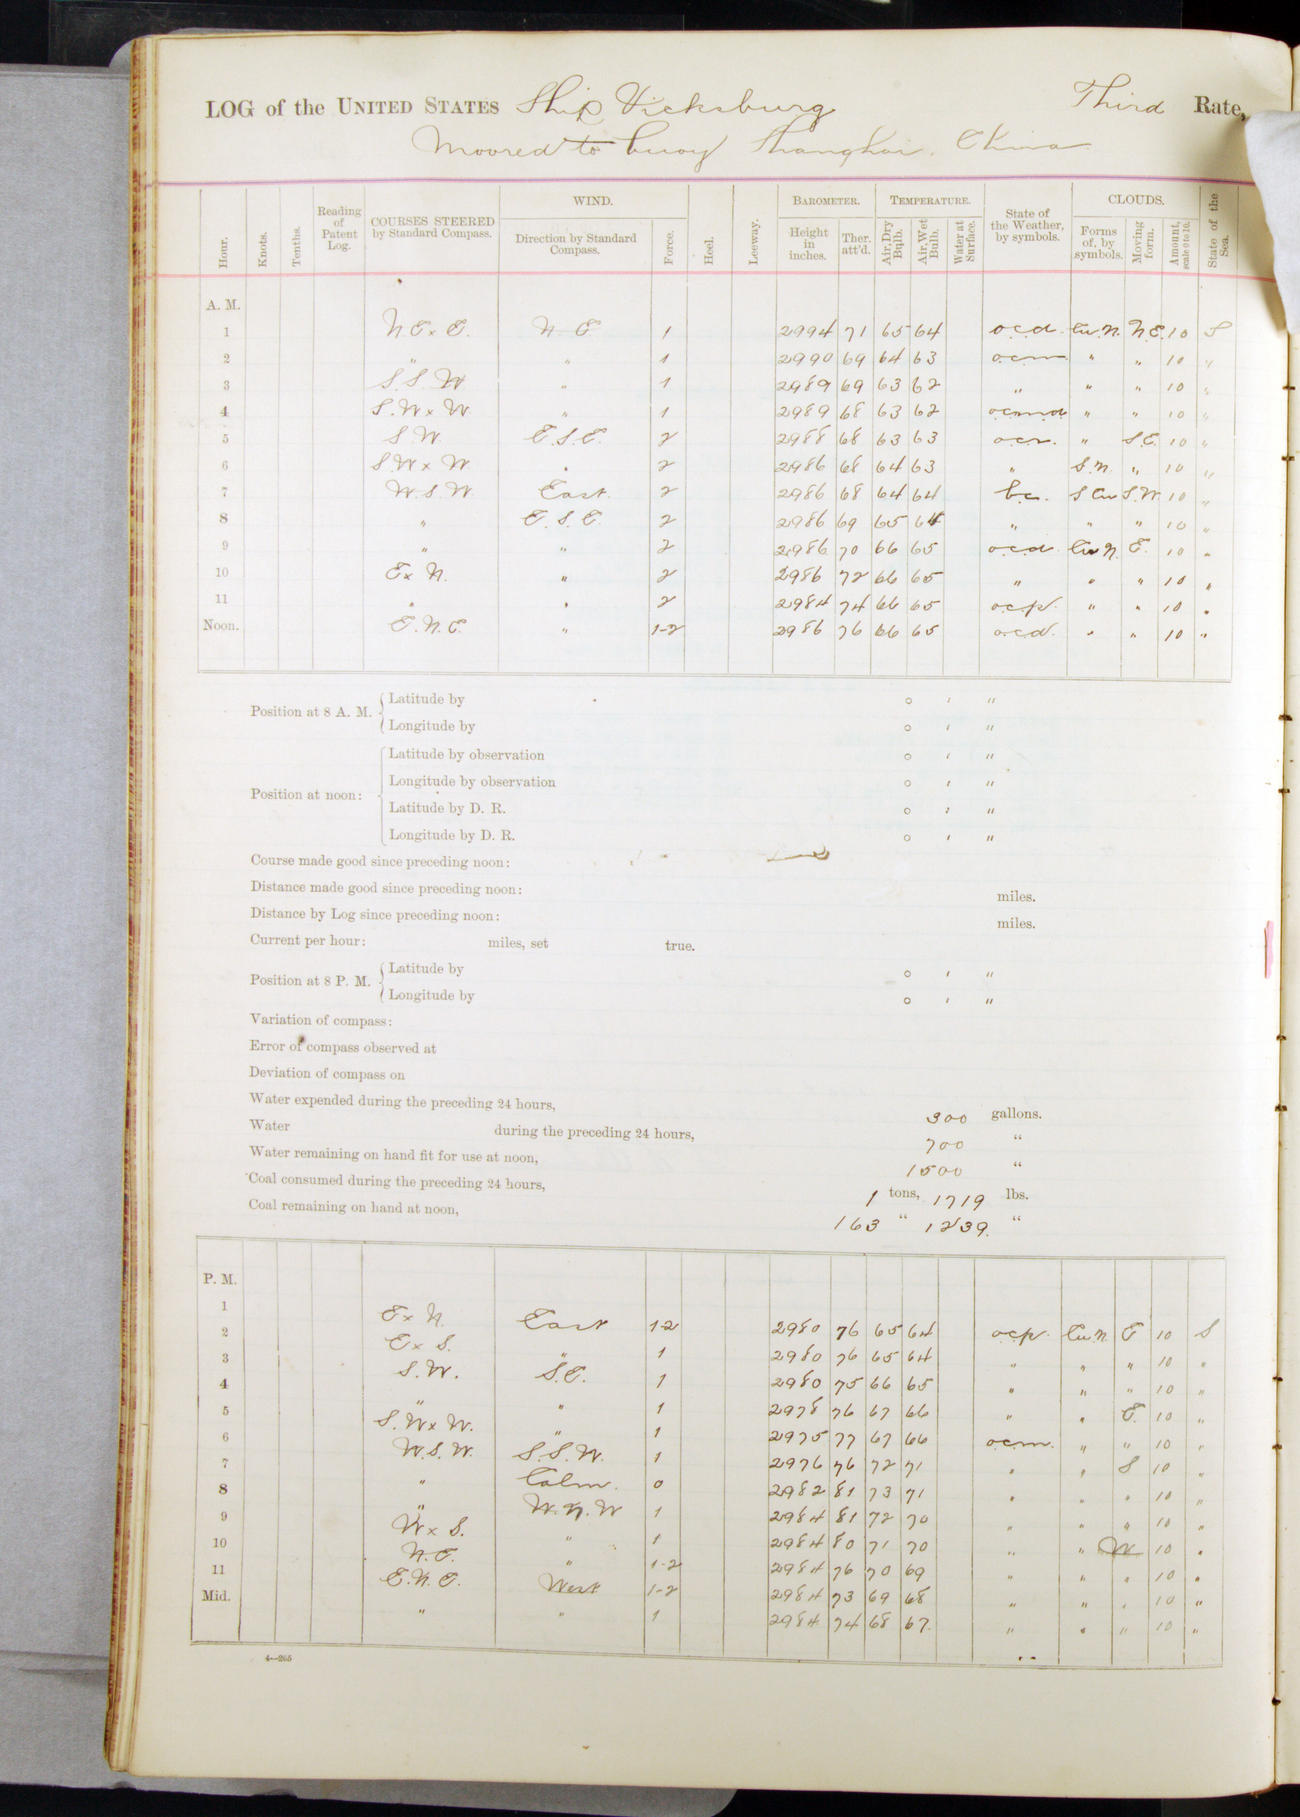 LOG of the UNITED STATES Ship Vicksburg Third Rate,
Moored to buoy Shanghai. China
Hour. Knots. Tenths. Reading of Patent Log. COURSES STEERED by Standard Compass. WIND. Direction by Standard Compass. Force. Heel. Leeway. BAROMETER. Height in inches. Ther. att'd. TEMPERATURE. Air, Dry Bulb. Air, Wet Bulb. Water at Surface. State of the Weather, by symbols. CLOUDS. Forms of, by symbols. Moving form. Amount, scale 0 to 10. State of the Sea.
A. M.
1 N E x E. N. E 1 2994 71 65 64 o.c.d. Cu.N. N.E. 10 S
2 " " 1 2990 69 64 63 o.c.m " " 10 "
3 S.S.W " 1 2989 69 63 62 " " " 10 "
4 S.W x W. " 1 2989 68 63 62 o.c.m.d " " 10 "
5 S W. E.S.E. 2 2988 68 63 63 o.c.r. " S.E. 10 "
6 S W x W. " 2 2986 68 64 63 " S.N. " 10 "
7 W.S.W East. 2 2986 68 64 64 b.c. S Cu S.W. 10 "
8 " E.S.E. 2 2986 69 65 64 " " " 10 "
9 " " 2 2986 70 66 65 o.c.d. Cu N. E. 10 "
10 E x N. " 2 2986 72 66 65 " " " 10 "
11 " " 2 2984 74 66 65 o.c.p. " " 10 "
Noon. E.N.E. " 1-2 2986 76 66 65 o.c.d. " " 10 "
Position at 8 A. M. Latitude by ° ′ ″
Longitude by ° ′ ″
Position at noon: Latitude by observation ° ′ ″
Longitude by observation ° ′ ″
Latitude by D. R. ° ′ ″
Longitude by D. R. ° ′ ″
Course made good since preceding noon:
Distance made good since preceding noon: miles.
Distance by Log since preceding noon: miles.
Current per hour: miles, set true.
Position at 8 P. M. Latitude by ° ′ ″
Longitude by ° ′ ″
Variation of compass:
Error of compass observed at
Deviation of compass on
Water expended during the preceding 24 hours, 300 gallons.
Water during the preceding 24 hours, 700 "
Water remaining on hand fit for use at noon, 1500 "
Coal consumed during the preceding 24 hours, 1 tons, 1719 lbs.
Coal remaining on hand at noon, 163 " 1239. "
P. M.
1 E x N. East 1-2 2980 76 65 64 o.c.p. Cu.N. E 10 S
2 E x S. " 1 2980 76 65 64 " " " 10 "
3 S.W. S.E. 1 2980 75 66 65 " " " 10 "
4 " " 1 2978 76 67 66 " " E. 10 "
5 S.W x W. " 1 2975 77 67 66 o.c.m. " " 10 "
6 W.S.W. S.S.W. 1 2976 76 72 71 " " S 10 "
7 " Calm. 0 2982 81 73 71 " " " 10 "
8 " W.N.W 1 2984 81 72 70 " " " 10 "
9 W x S. " 1 2984 80 71 70 " " W 10 "
10 N.E. " 1-2 2984 76 70 69 " " " 10 "
11 E.N.E. West 1-2 2984 73 69 68 " " " 10 "
Mid. " " 1 2984 74 68 67. " " " 10 "
4—265